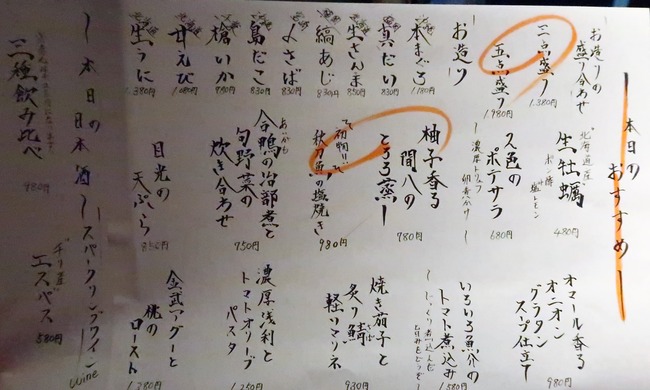 本日のおすすめ
お造りの
盛り合わせ
三点盛り
1.380円
五点盛り
1.980円
お造り
本まぐろ
1.180円
真だい
830円
生さんま
830円
縞あじ
830円
〆さば
830円
島だこ
830円
槍いか
甘えび
1.080円
生うに
1.380円
北海道産
生牡蠣
ポン酢
塩レモン
480円
ポテサラ
680円
柚子香る
間八の
とろろ蒸し
780円
初物!!
秋刀魚の塩焼き
980円
合鴨の治部煮と
旬野菜の
炊き合わせ
750円
目光の
天ぷら
850円
オマール香る
オニオン
グラタン
スープ仕立て
980円
いろいろ魚介の
トマト煮込み
1.580円
焼き茄子と
炙り鯖
軽いマリネ
930円
濃厚浅利と
トマトオリーブ
パスタ
1.250円
金武アグーと
桃の
ロースト
1.780円
本日の日本酒
三種飲み比べ
980円
スパークリングワイン
wine
チリ産
エスパス
580円